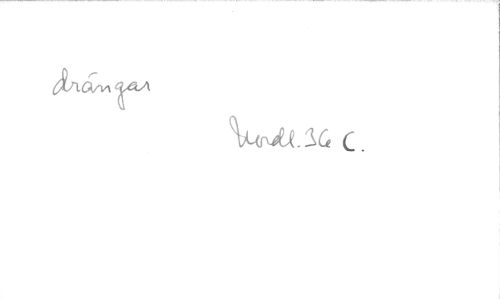 drángar
Nordl. 36 C.